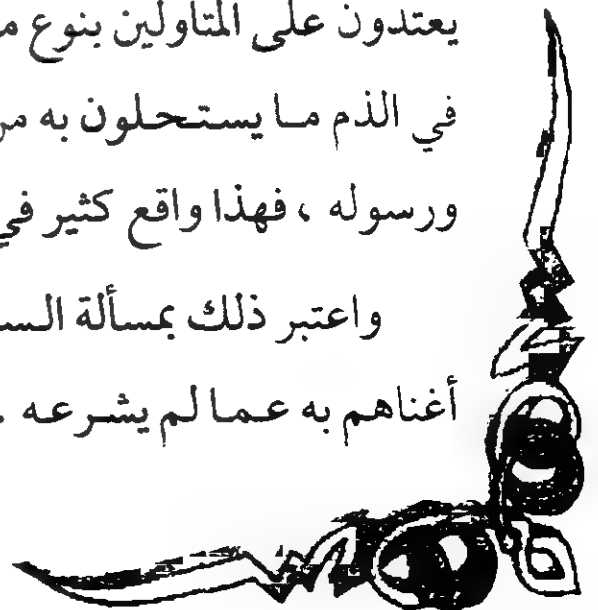 يعتدون على المتاولين بنوع
في الذم ما يستحلون به
ورسوله ، فهذا واقع كثير في
واعتبر ذلك بمسألة
أغناهم به عما لم يشرعه